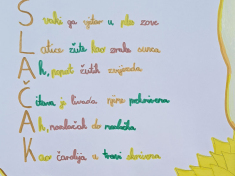 Svaki ga vjetar u zove
Latice žute kao zrake sunca
Ah, poput žutih zvijezda
Čitava je livada njime prekrivena
Ah, maslačak do
Kao čarolija u travi skrivena